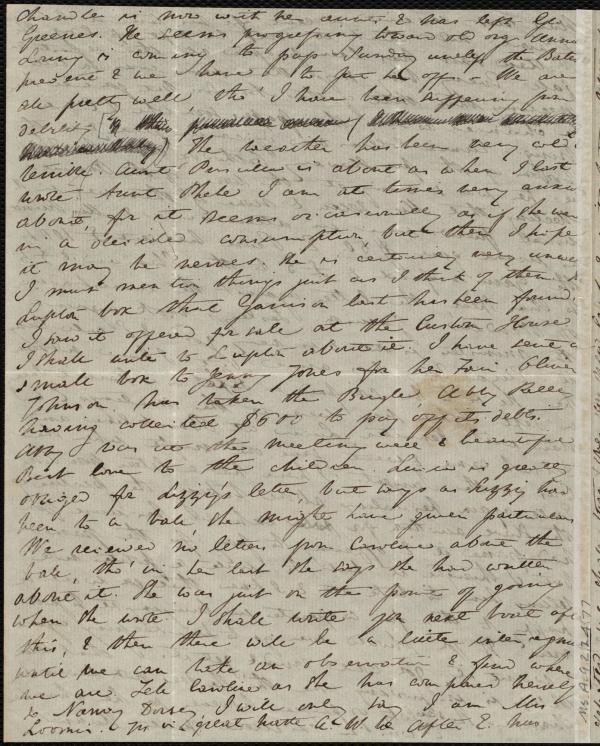 Chandler is now with her aunt & has left
Greenes. He seems progressing toward old org. Anna
Loring is coming to pass Sunday unless the
prevent & we have to put her off. We are
all pretty well, tho' I have been suffering from
debility
The weather has been very cold
terrible. Aunt is about as when I last
wrote. Aunt Phebe I am at times very
about, for it seems occasionally as if she were
in a decided consumption, but then I hope
it may be nerves. She is certainly very
I must mention things just as I think of them.
Lupton box that Garrison lost has been found.
I saw it offered for sale at the Custom House
I shall write to Lupton about it. I have sent a
small box to Jenny Jones for her Fair. Oliver
Johnson has taken the Bugle. Abby Kelley
having collected $600 to pay off its debts.
Abby was at the meeting well & beautiful
Best love to the children. is greatly
obliged for Lizzy's letter, but says as Lizzy had
been to a ball she might have given particulars
We received no letters from Caroline about the
ball, tho' in her last she says she had written
about it. She was just on the point of going
when she wrote. I shall write per next boat after
this, & then there will be a little
until we can take an observation & find where
we are. Tell Caroline as she has compared herself
to Nancy Dorsey, I will only say I am Mrs
Loomis. great haste A.W.W. After E. has
Ms.A.9.2.24.77